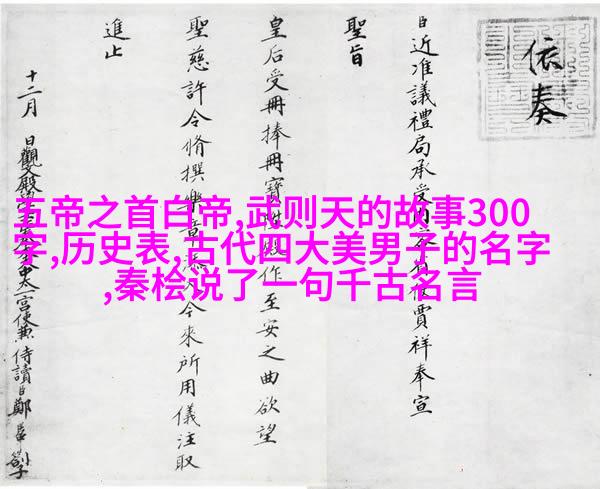 依奏
臣近准議禮局承受內賈祥奉宣
聖旨
皇后受冊捧冊寶作至安之曲欲望
聖慈許令脩撰樂章今來所用儀注取
進止
十二月 日觀文殿太一宮使兼侍讀臣鄭
五帝之首白帝,武则天的故事300
字,历史表,古代四大美男子的名字
,秦桧说了一句千古名言